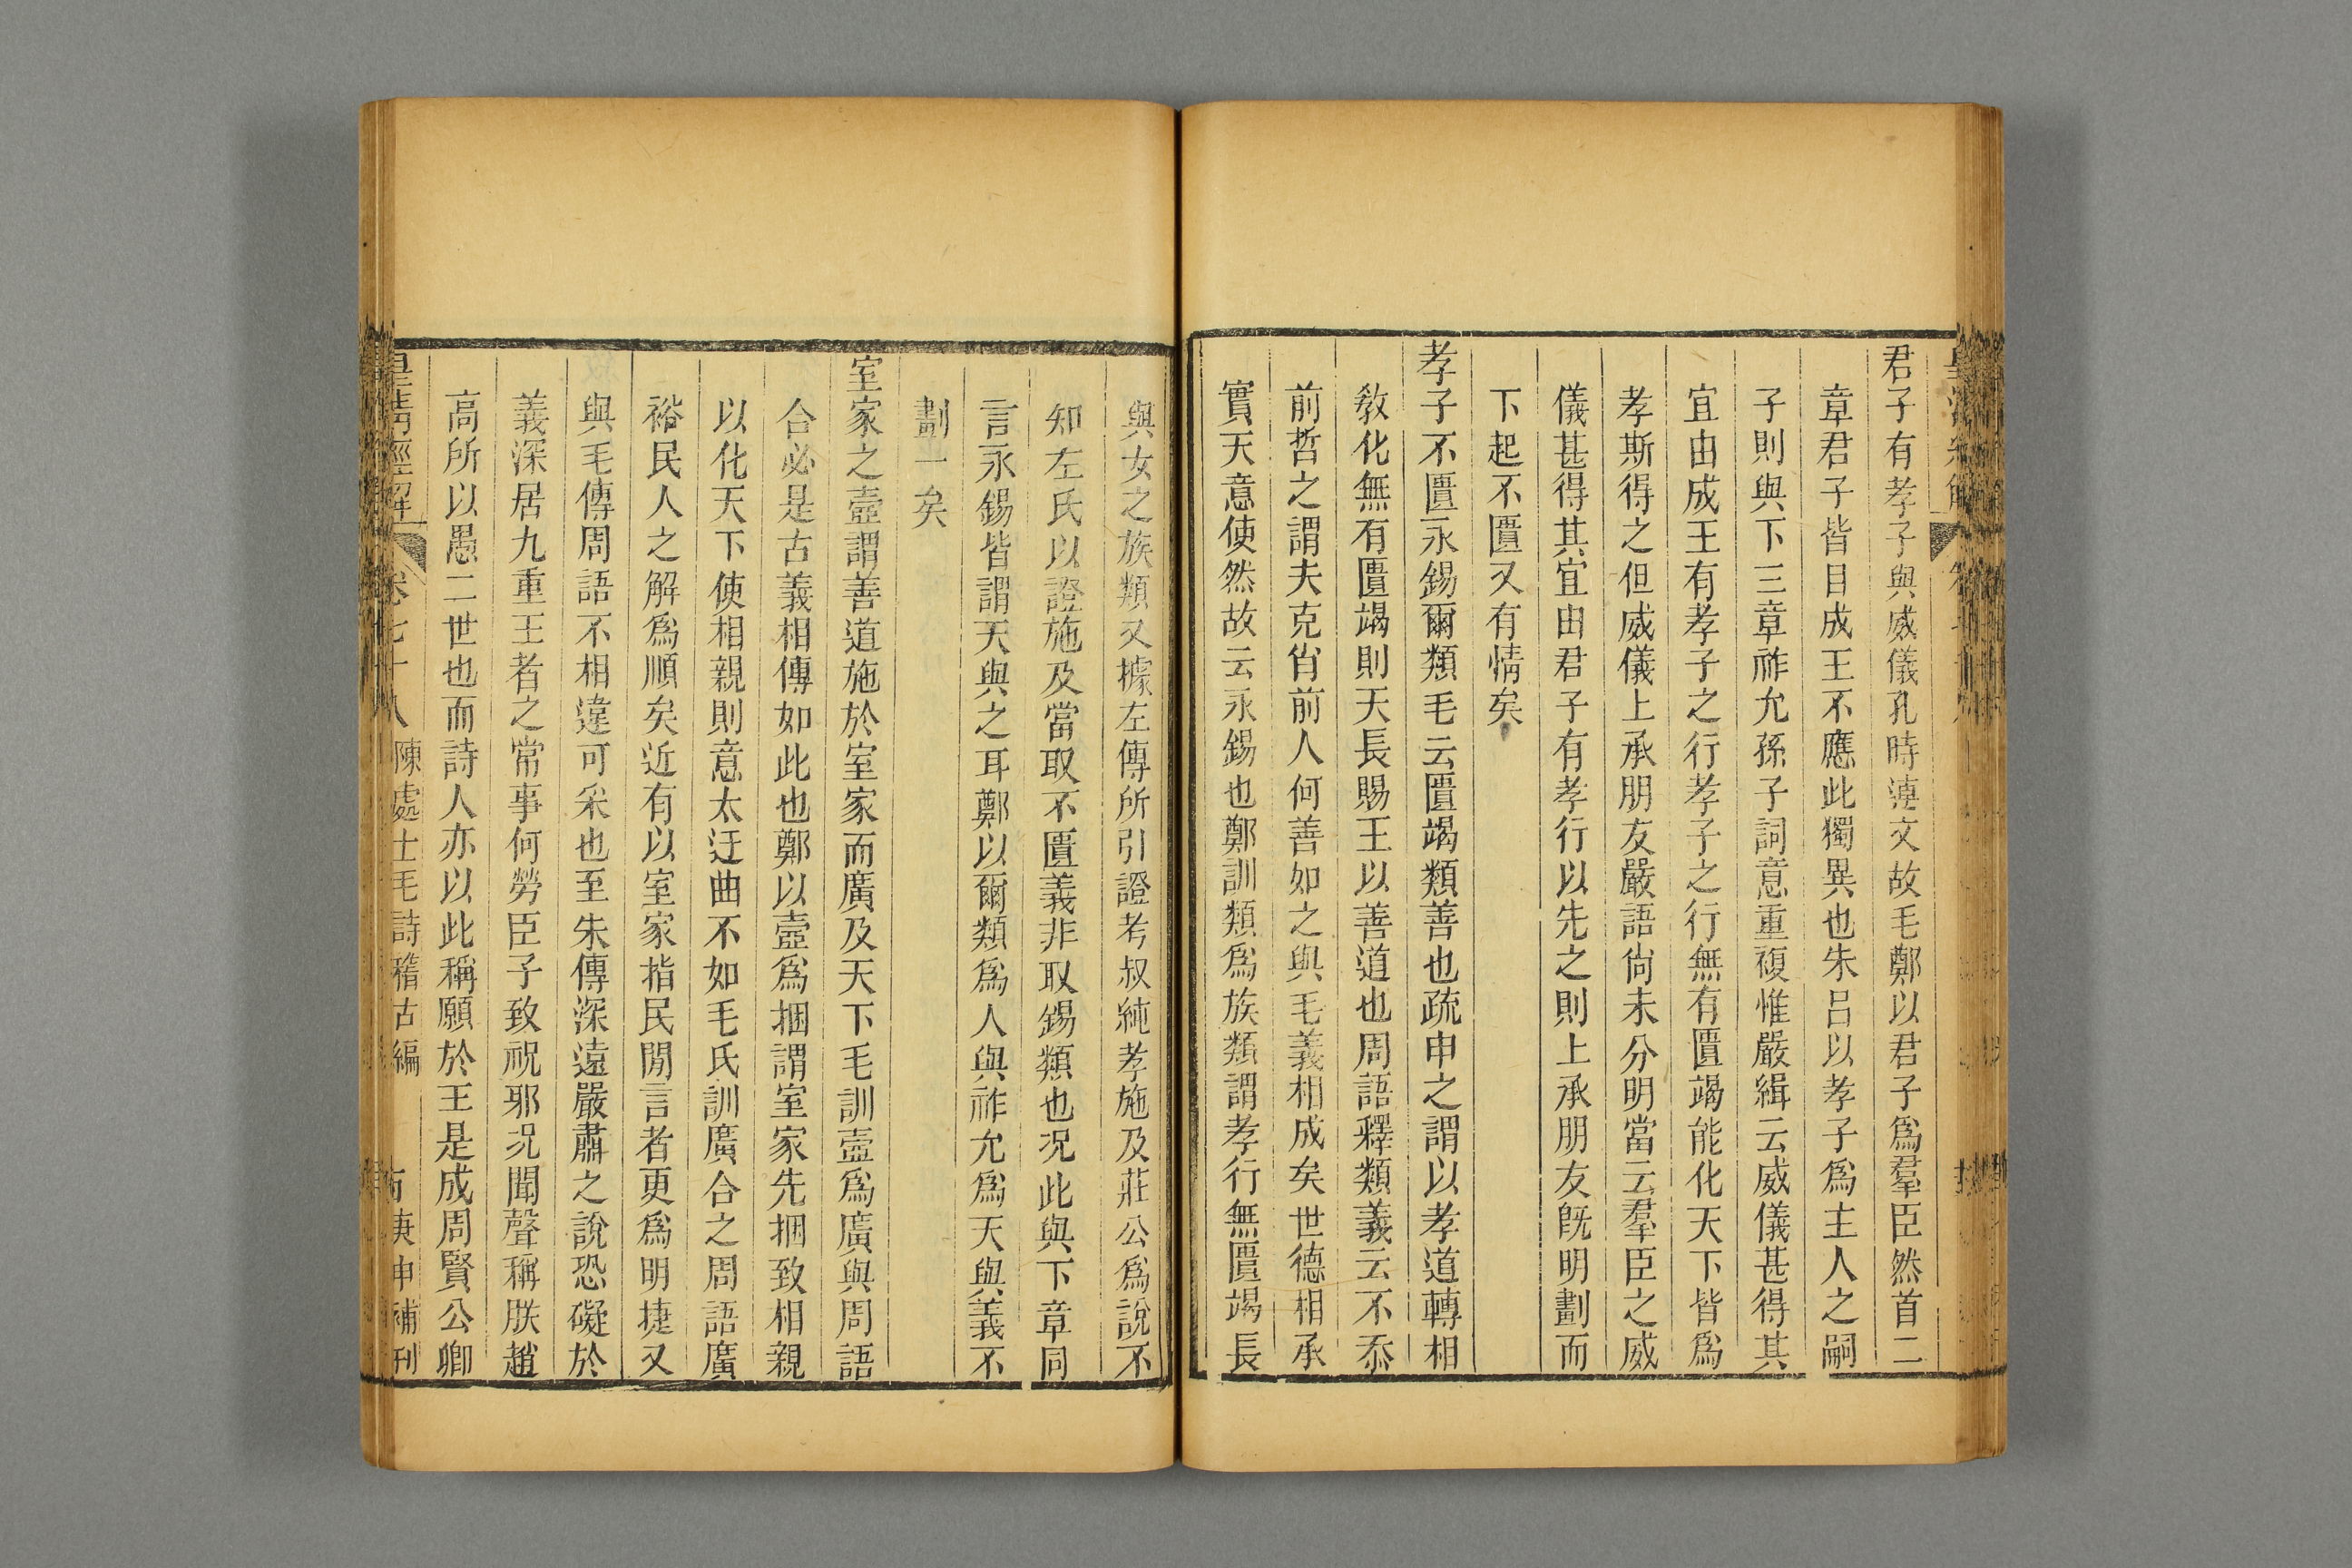 君子有孝子與威儀孔時連文故毛鄭以君子爲羣臣然首二
章君子皆目成王不應此獨異也朱呂以孝子爲主人之嗣
子則與下三章祚允孫子詞意重複惟嚴緝云威儀甚得其
宜由成王有孝子之行孝子之行無有匱竭能化天下皆爲
孝斯得之但威儀上承朋友嚴語尙未分明當云羣臣之威
儀甚得其宜由君子有孝行以先之則上承朋友旣明劃而
下起不匱又有情矣
孝子不匱永錫爾類毛云匱竭類善也疏申之謂以孝道轉相
敎化無有匱竭則天長賜王以善道也周語釋類義云不忝
前哲之謂夫克肖前人何善如之與毛義相成矣世德相承
實天意使然故云永錫也鄭訓類爲族類謂孝行無匱竭長
與女之族類又據左傳所引證考叔純孝施及莊公爲說不
知左氏以證施及當取不匱義非取錫類也况此與下章同
言永錫皆謂天與之耳鄭以爾類爲人與祚允爲天與義不
劃一矣
室家之壼謂善道施於室家而廣及天下毛訓壼爲廣與周語
合必是古義相傳如此也鄭以壼爲捆謂室家先捆致相親
以化天下使相親則意太迂曲不如毛氏訓廣合之周語廣
裕民人之解爲順矣近有以室家指民閒言者更爲明捷又
與毛傳周語不相違可采也至朱傳深遠嚴肅之說恐礙於
義深居九重王者之常事何勞臣子致祝邪况聞聲稱朕趙
高所以愚二世也而詩人亦以此稱願於王是成周賢公卿
皇淸經解 卷七十八 陳處士毛詩稽古編 庚申補刊